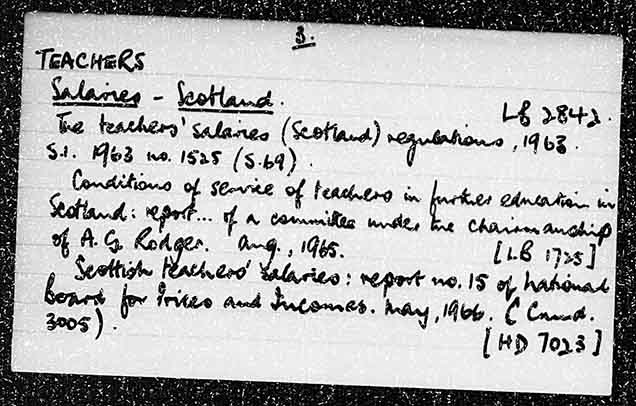 3.
TEACHERS
Salaries - Scotland.
LB 2842.
The teachers' salaries (Scotland) regulations, 1963.
S.I. 1963 no. 1525 (S.69).
Conditions of service of teachers in further education in
Scotland: report... of a committee under the chairmanship
of A.G. Rodger. Aug., 1965. [LB 1725]
Scottish teachers' salaries: report no. 15 of National
Board for Prices and Incomes. May, 1966. (Cmnd.
3005).
[HD 7023]